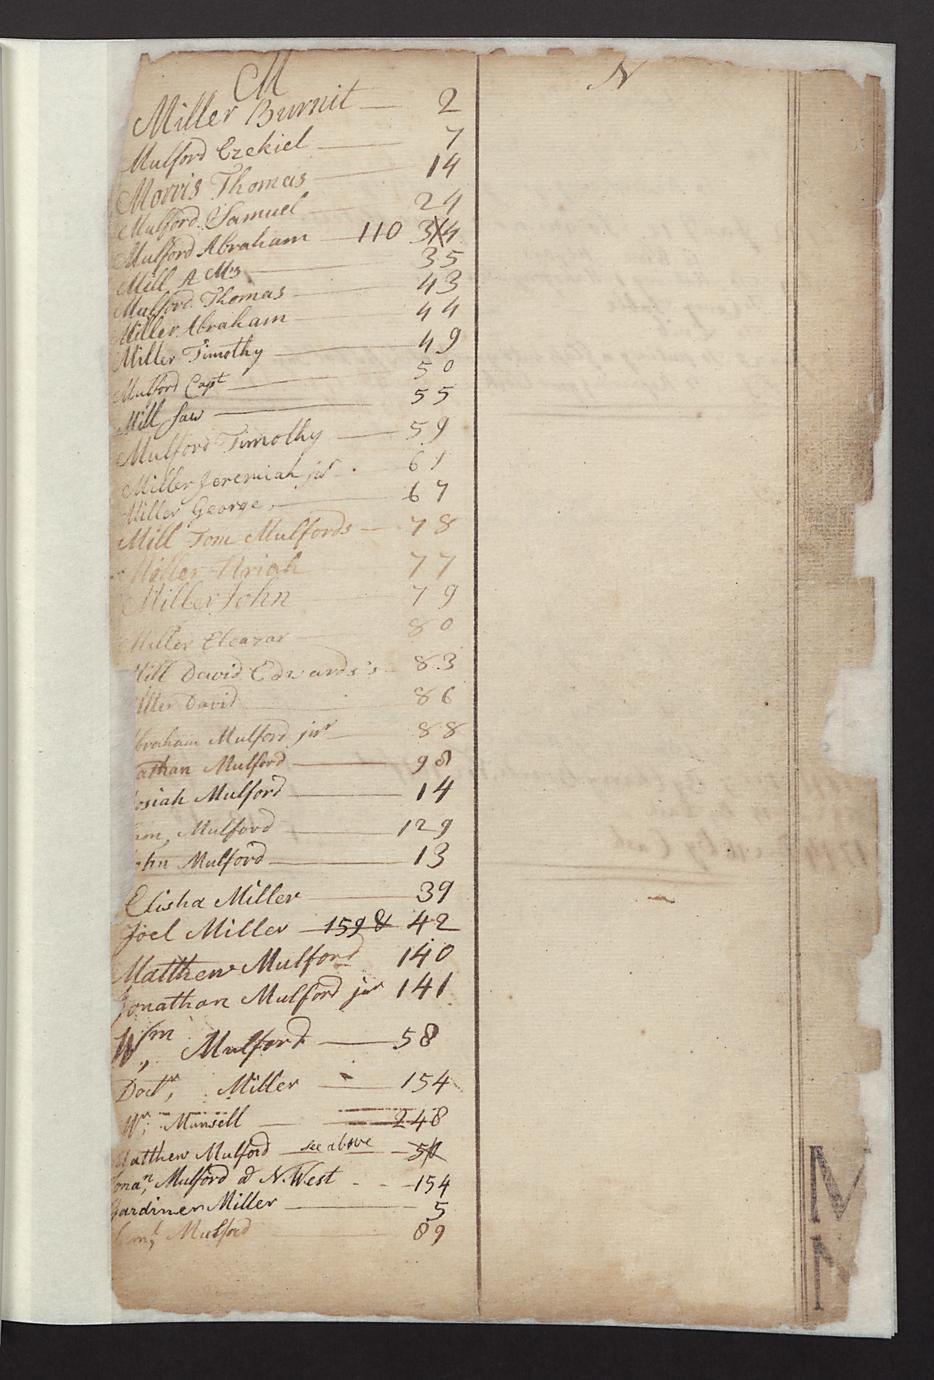 M
Miller Burnit — 2
Mulford Ezekiel — 7
Morris Thomas — 14
Mulford Samuel — 24
Mulford Abraham — 110 34
Mill A Mrs — 35
Mulford Thomas — 43
Miller Abraham — 44
Miller Timothy — 49
Mulford Capt — 50
Mill Saw — 55
Mulford Timothy — 59
Miller Jeremiah jur 61
Miller George, — 67
Mill Tom Mulfords — 78
Miller Uriah 77
Miller John — 79
Miller Eleazar — 80
Mill David Edwards's — 83
iller David — 86
braham Mulford jur — 88
athan Mulford — 98
osiah Mulford — 14
Mulford — 129
ohn Mulford — 13
Elisha Miller — 39
Joel Miller — 159 & 42
Matthew Mulford 140
Jonathan Mulford jur 141
Wm, Mulford — 58
Doctr, Miller — 154
Wm, Munsell — 248
Matthew Mulford — see above — 54
Jonan, Mulford a N. West - - 154
Gardiner Miller — 5
Mulford 89
N
M
N